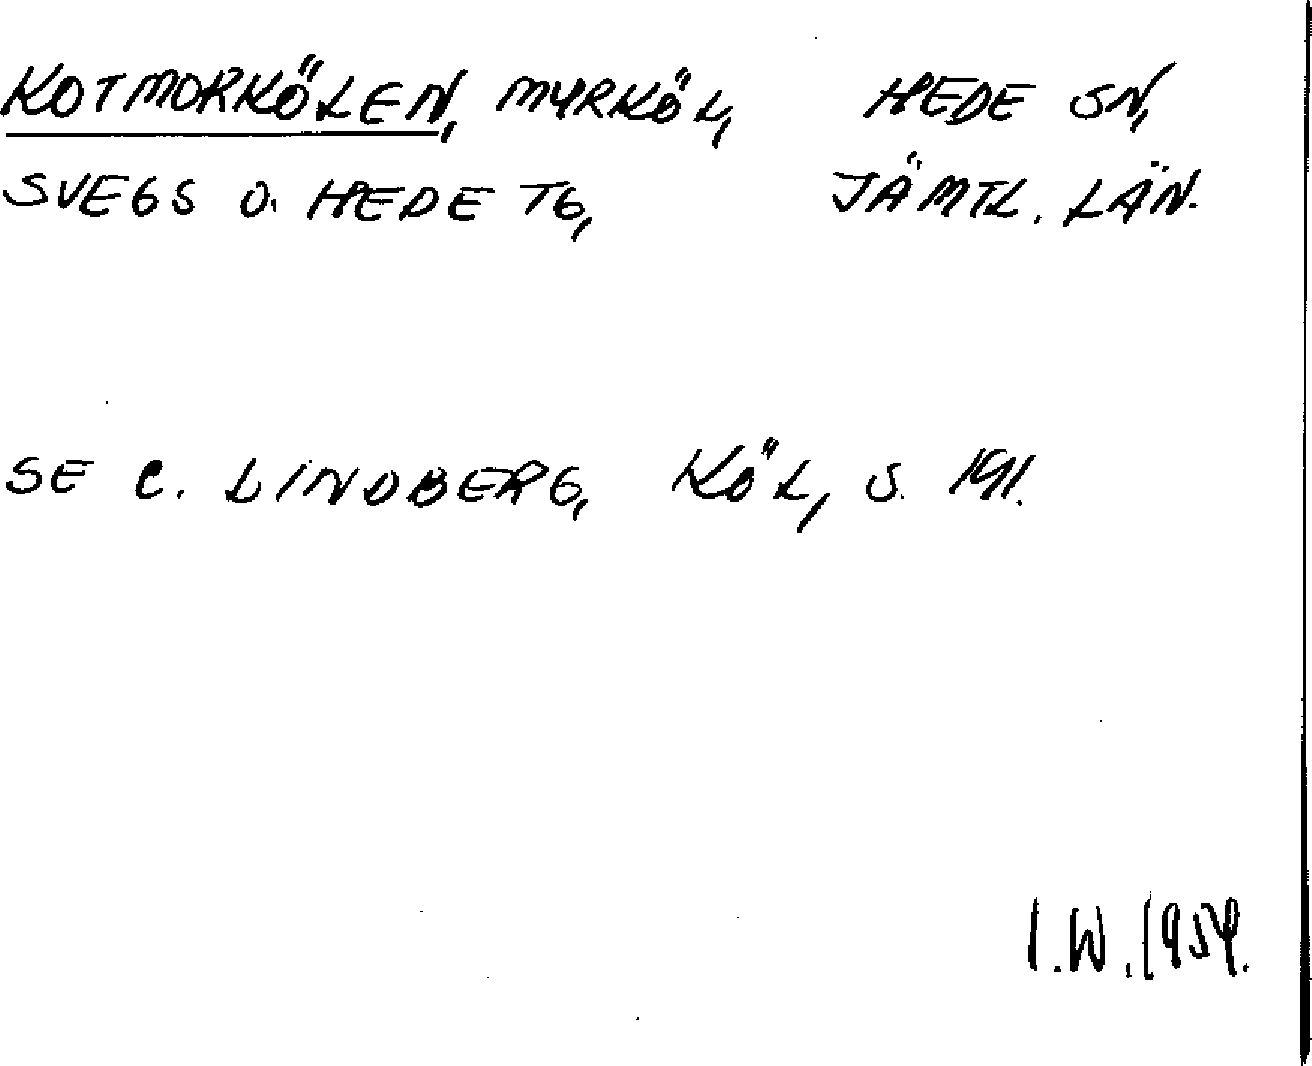 KOTMORKÖLEN, MYRKÖL, HEDE SN,
SVEGS O. HEDE TG, JÄMTL. LÄN.
SE C. LINDBERG, KÖL, S. 191.
I.W. 1954.